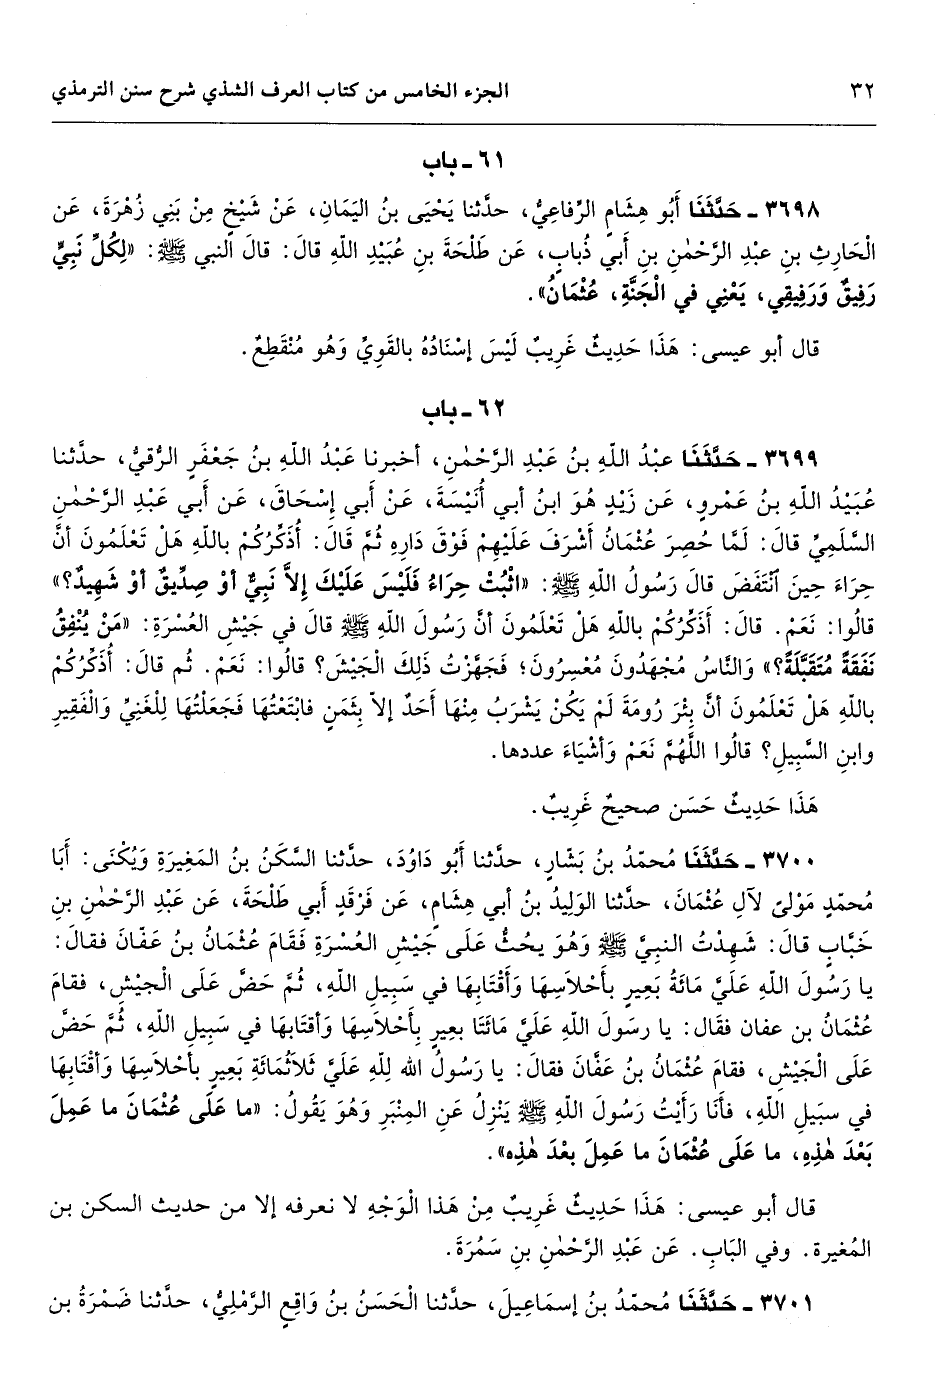 ٣٢ الجزء الخامس من كتاب العرف الشذي شرح سنن الترمذي
٦١ ـ باب
٣٦٩٨ ـ حَدَّثَنَا أَبُو هِشَامٍ الرِّفاعِيُّ، حدَّثنا يَحْيَى بنُ اليَمَانِ، عَنْ شَيْخٍ مِنْ بَنِي زُهْرَةَ، عَن
الْحَارِثِ بنِ عبْدِ الرَّحْمٰنِ بنِ أبي ذُبابٍ، عَن طَلْحَةَ بنِ عُبَيْدِ اللّهِ قالَ: قالَ النبي ﷺ: «لِكُلِّ نَبِيٍّ
رَفِيقٌ وَرَفِيقِي، يَعْنِي في الْجَنَّةِ، عُثْمَانُ».
قال أبو عيسى: هَذَا حَدِيثٌ غَرِيبٌ لَيْسَ إسْنَادُهُ بالقَوِيِّ وَهُو مُنْقَطِعٌ.
٦٢ ـ باب
٣٦٩٩ ـ حَدَّثَنَا عبْدُ اللّهِ بنُ عَبدِ الرَّحْمٰنِ، أخبرنا عَبْدُ اللّهِ بنُ جَعْفَرٍ الرُّقيُّ، حدَّثنا
عُبَيْدُ اللّهِ بنُ عَمْرٍو، عَن زَيْدٍ هُوَ ابنُ أبي أُنَيْسَةَ، عَنْ أبي إسْحَاقَ، عَن أبي عَبْدِ الرَّحْمٰنِ
السُّلَمِيِّ قالَ: لَمَّا حُصِرَ عُثْمَانُ أشْرَفَ عَلَيْهِمْ فَوْقَ دَارِهِ ثُمَّ قالَ: أُذَكِّرُكُم باللّهِ هَلْ تَعْلَمُونَ أنَّ
حِرَاءَ حِينَ انْتَفَضَ قالَ رَسُولُ اللّهِ ﷺ: «اثْبُتْ حِرَاءُ فَلَيْسَ عَلَيْكَ إلاَّ نَبِيٌّ أوْ صِدِّيقٌ أوْ شَهِيدٌ؟»
قالُوا: نَعَمْ. قالَ: أُذَكِّرُكُمْ باللّهِ هَلْ تَعْلَمُونَ أنَّ رَسُولَ اللّهِ ﷺ قالَ في جَيْشِ العُسْرَةِ: «مَنْ يُنْفِقُ
نَفَقَةً مُتَقَبَّلَةً؟» وَالنَّاسُ مُجْهَدُونَ مُعْسِرُونَ؛ فَجَهَّزْتُ ذَلِكَ الْجَيْشَ؟ قالُوا: نَعَمْ. ثُم قالَ: أُذَكِّرُكُمْ
باللّهِ هَلْ تَعْلَمُونَ أنَّ بِئْرَ رُومَةَ لَمْ يَكُنْ يَشْرَبُ مِنْهَا أحَدٌ إلاّ بِثَمَنٍ فابْتَعْتُهَا فَجَعَلْتُهَا لِلْغَنِيِّ وَالْفَقِيرِ
وابنِ السَّبِيلِ؟ قالُوا اللَّهُمَّ نَعَمْ وَأشْيَاءَ عددها.
هَذَا حَدِيثٌ حَسَن صحيحٌ غَرِيبٌ.
٣٧٠٠ ـ حَدَّثَنَا مُحمّدُ بنُ بَشارٍ، حدَّثنا أَبُو دَاوُدَ، حدَّثنا السَّكَنُ بنُ المَغِيرَةِ وَيُكْنَى: أَبَا
مُحمّدٍ مَوْلىً لآلِ عُثْمَانَ، حدَّثنا الوَلِيدُ بنُ أبي هِشَامٍ، عَن فَرْقَدٍ أبي طَلْحَةَ، عَن عَبْدِ الرَّحْمٰنِ بنِ
خَبَّابٍ قالَ: شَهِدْتُ النبيَّ ﷺ وَهُوَ يحُثُّ عَلَى جَيْشِ العُسْرَةِ فَقَامَ عُثْمَانُ بنُ عَفّانَ فقالَ:
يا رَسُولَ اللّهِ عَلَيَّ مَائَةُ بَعِيرٍ بأحْلاَسِهَا وَأقْتَابِهَا في سَبِيلِ اللّهِ، ثُمَّ حَضَّ عَلَى الْجيْشِ، فقامَ
عُثْمَانُ بن عفان فقَال: يا رسُولَ اللّهِ عَلَيَّ مائَتَا بعِيرٍ بِأحْلاَسِهَا وَأقتابِهَا في سَبِيلِ اللّهِ، ثُمَّ حَضَّ
عَلَى الْجَيْشِ، فقامَ عُثْمَانُ بنُ عَفَّانَ فقالَ: يا رَسُولُ الله لِلّهِ عَلَيَّ ثَلاَثُمائَةِ بَعِيرٍ بأحْلاَسِهَا وَأقْتَابِهَا
في سبيلِ اللّهِ، فأنَا رَأيْتُ رَسُولَ اللّهِ ﷺ يَنْزِلُ عَنِ المِنْبَرِ وَهُوَ يَقُولُ: «ما عَلَى عُثْمَانَ ما عَمِلَ
بَعْدَ هٰذِهِ، ما عَلَى عُثْمَانَ ما عَمِلَ بعْدَ هٰذِه».
قال أبو عيسى: هَذَا حَدِيثٌ غَرِيبٌ مِنْ هَذا الْوَجْهِ لا نعرفه إلا من حديث السكن بن
المُغيرة. وفي البَابِ. عَن عَبْدِ الرَّحْمٰنِ بنِ سَمُرَةَ.
٣٧٠١ ـ حَدَّثَنَا مُحمّدُ بنُ إسمَاعِيلَ، حدَّثنا الْحَسَنُ بنُ وَاقِعٍ الرَّمْلِيُّ، حدَّثنا ضَمْرَةُ بن